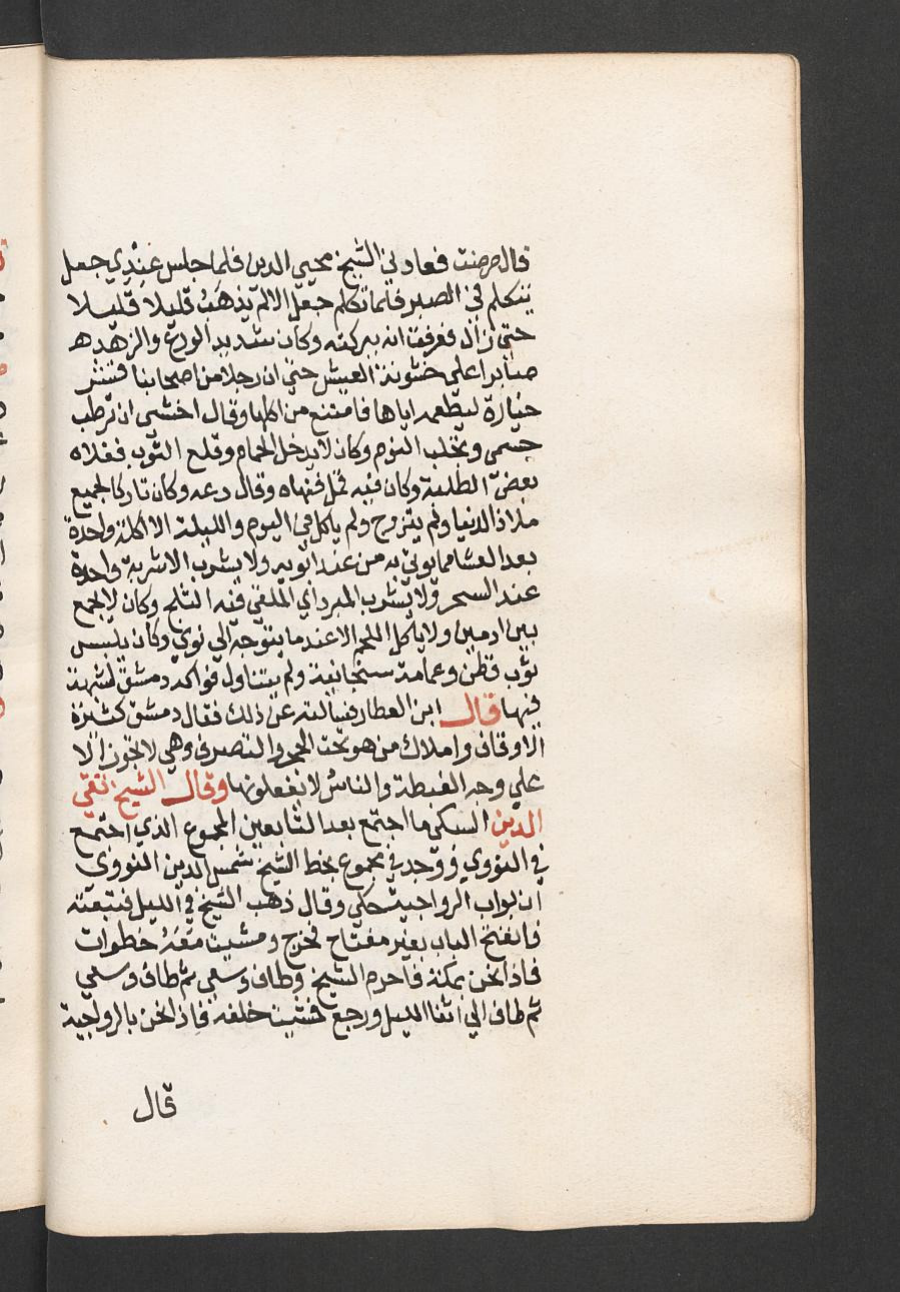 قال مرضت فعادني الشيخ محيي الدين فلما جلس عندي جعل
يتكلم في الصبر فلما تكلم جعل الالم يذهب قليلا قليلا
حتى زال فعرفت انه ببركته وكان شديد الورع والزهد
صابرا علي خشونة العيش حتى ان رجلا من اصحابنا قشر
خيارة ليطعمه اياها فامتنع من اكلها وقال اخشى ان ترطب
جسمى وتجلب النوم وكان لا يدخل الحمام وقلع الثوب ففلاه
بعض الطلبة وكان فيه قمل فنهاه وقال دعه وكان تاركا لجميع
ملاذ الدنيا ولم يتزوج ولم ياكل في اليوم والليلة الا اكلة واحدة
بعد العشا مما يوتي به من عند ابويه ولا يشرب الا شربة واحدة
عند السحر ولا يشرب المبرد اي الملقى فيه الثلج وكان لا يجمع
بين ادمين ولا ياكل اللحم الا عند ما يتوجه الي نوي وكان يلبس
ثوب قطن وعمامة سنجابية ولم يتناول فواكه دمشق لشبهة
فيها قال ابن العطار فسالته عن ذلك فقال دمشق كثيرة
الاوقاف واملاك من هو تحت الحجر والتصرف وهي لا تجوز الا
علي وجه الغبطة والناس لا يفعلونها وقال الشيخ تقي
الدين السبكى ما اجتمع بعد التابعين المجموع الذي اجتمع
في النووي ووجد في مجموع بخط الشيخ شمس الدين النووى
ان بواب الرواحية حكي وقال ذهب الشيخ في الليل فتبعته
فانفتح الباب بغير مفتاح فخرج ومشيت معه خطوات
فاذا نحن بمكة فاحرم الشيخ وطاف وسعى ثم طاف وسعي
ثم طاف الي اثنا الليل ورجع فمشيت خلفه فاذا نحن بالرواحية
قال